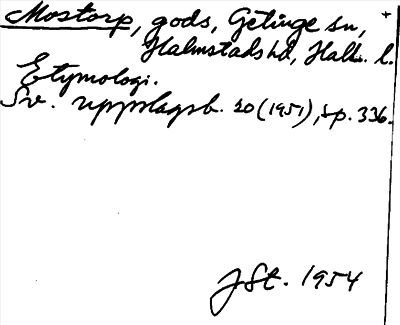 Mostorp, gods, Getinge sn, +
Halmstads hd, Hall. l.
Etymologi.
Sv. uppslagsb. 20 (1951), sp. 336.
JSt. 1954